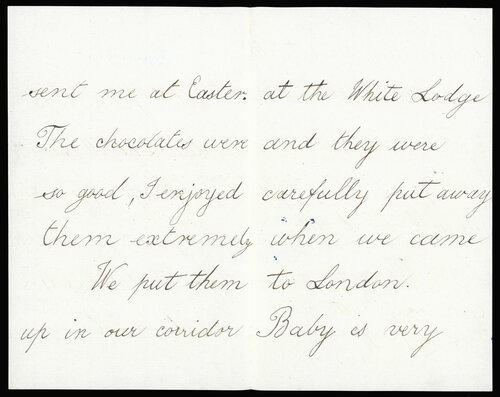 sent me at Easter.
The chocolates were
so good, I enjoyed
them extremely
We put them
up in our corridor
at the White Lodge
and they were
carefully put away
when we came
to London.
Baby is very